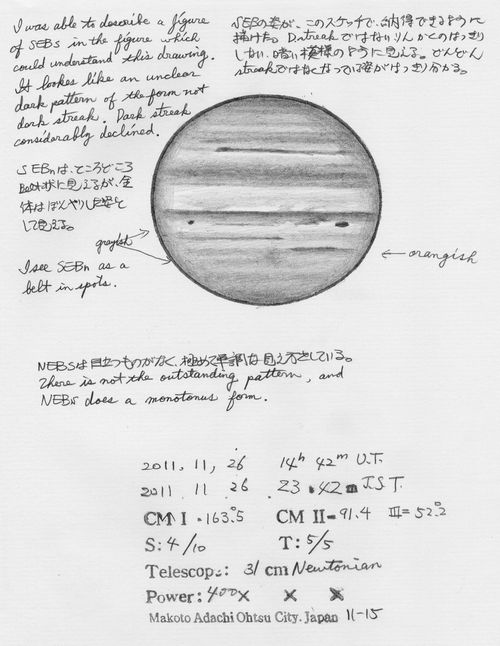 I was able to describe a figure
of SEBs in the figure which
could understand this drawing.
It lookes like an unclear
dark pattern of the form not
dark streak. Dark streak
considarably declined.
SEBの姿が、このスケッチで、納得できるように
描けた。D.streakではないりんかくのはっきり
しない、暗い模様のように見える。どんどん
streakではなくなっている姿がはっきり分かる。
SEBnは、ところどころ
Belt状に見えるが、全
体はぼんやりした姿と
して見える。
grayish
I see SEBn as a
belt in spots.
orangish
NEBSは目立つものがなく、極めて単調な見え方をしている。
There is not the outstanding pattern, and
NEBs does a monotonus form.
2011, 11, 26 14h 42m U.T.
2011 11 26 23 42 J.S.T.
CM I 163°.5 CM II 91.4 III= 52°.2
S: 4/10 T: 5/5
Telescope: 31 cm Newtonian
Power: 400× × ×
Makoto Adachi Ohtsu City. Japan 11-15